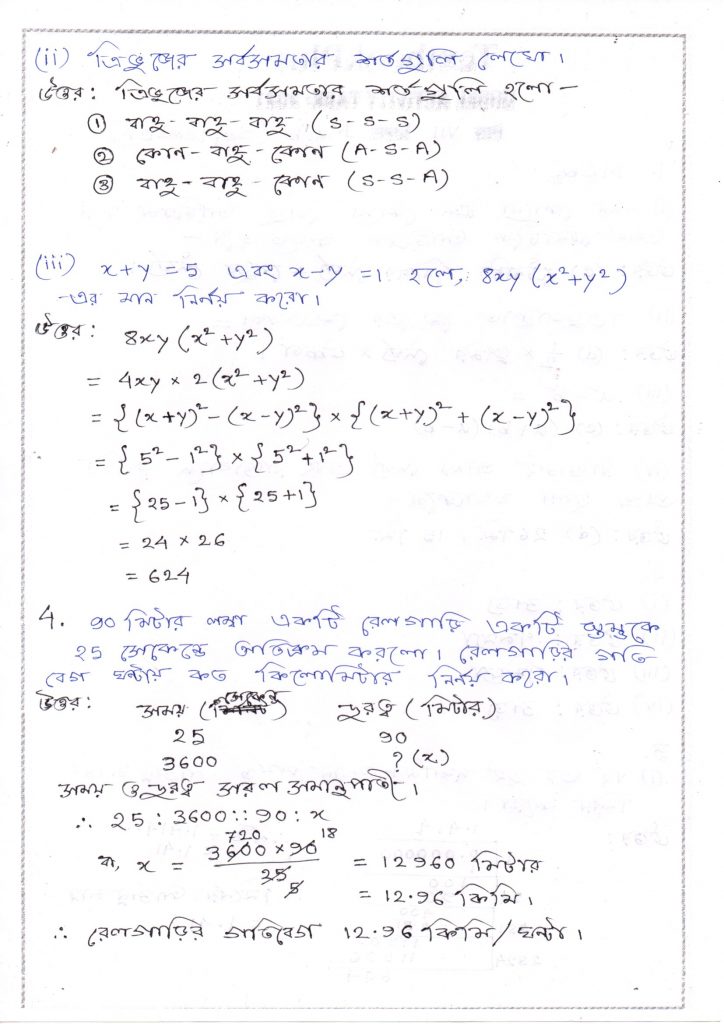 (ii) ত্রিভুজের সর্বসমতার শর্তগুলি লেখো।
উত্তর: ত্রিভুজের সর্বসমতার শর্তগুলি হলো -
① বাহু - বাহু - বাহু (S-S-S)
② কোন - বাহু - কোন (A-S-A)
③ বাহু - বাহু - কোন (S-S-A)
(iii) x+y = 5 এবং x-y = 1 হলে, 8xy (x²+y²)
-এর মান নির্ণয় করো।
উত্তর: 8xy (x²+y²)
= 4xy × 2(x²+y²)
= {(x+y)² - (x-y)²} × {(x+y)² + (x-y)²}
= {5² - 1²} × {5² + 1²}
= {25-1} × {25+1}
= 24 × 26
= 624
4. 90 মিটার লম্বা একটি রেলগাড়ি একটি স্তম্ভকে
25 সেকেন্ডে অতিক্রম করলো। রেলগাড়ির গতি
বেগ ঘন্টায় কত কিলোমিটার নির্ণয় করো।
উত্তর: সময় (সেকেন্ড) দুরত্ব (মিটার)
25 90
3600 ? (x)
সময় ও দুরত্ব সরল সমানুপাতী।
∴ 25 : 3600 :: 90 : x
720 18
বা, x = 3600 × 90 / 25 = 12960 মিটার
5
= 12.96 কিমি।
∴ রেলগাড়ির গতিবেগ 12.96 কিমি/ঘন্টা।